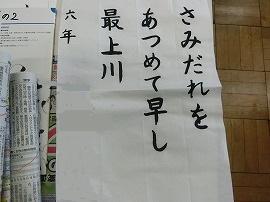 さみだれを
あつめて早し
最上川
六年
の2